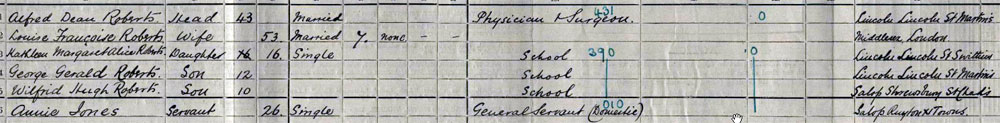 1 Alfred Dean Roberts. Head 43 Married Physician & Surgeon. 431 0 Lincoln Lincoln St Martin's
2 Louise Françoise Roberts. Wife 53. Married 7. none – – Middlesex, London.
3 Kathleen Margaret Alice Roberts. Daughter 16. Single School 390 0 Lincoln Lincoln St Swithins
4 George Gerald Roberts. Son 12 School Lincoln Lincoln St Martin's
5 Wilfrid Hugh Roberts. Son 10 School Salop Shrewsbury St Chad's
Annie Jones Servant 26. Single General Servant (Domestic) 010 Salop Ruyton XI Towns.